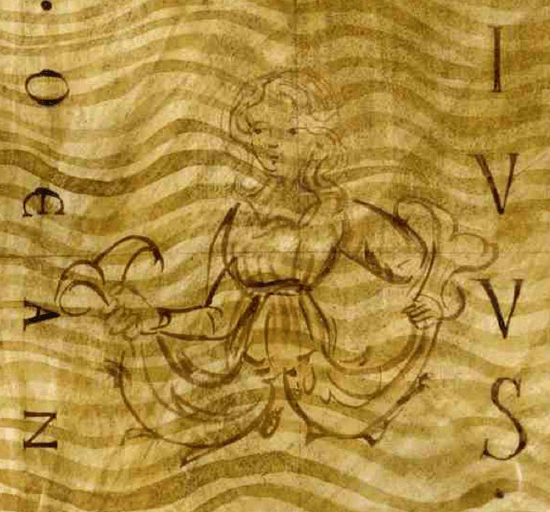 · O E A N
I V V S ·